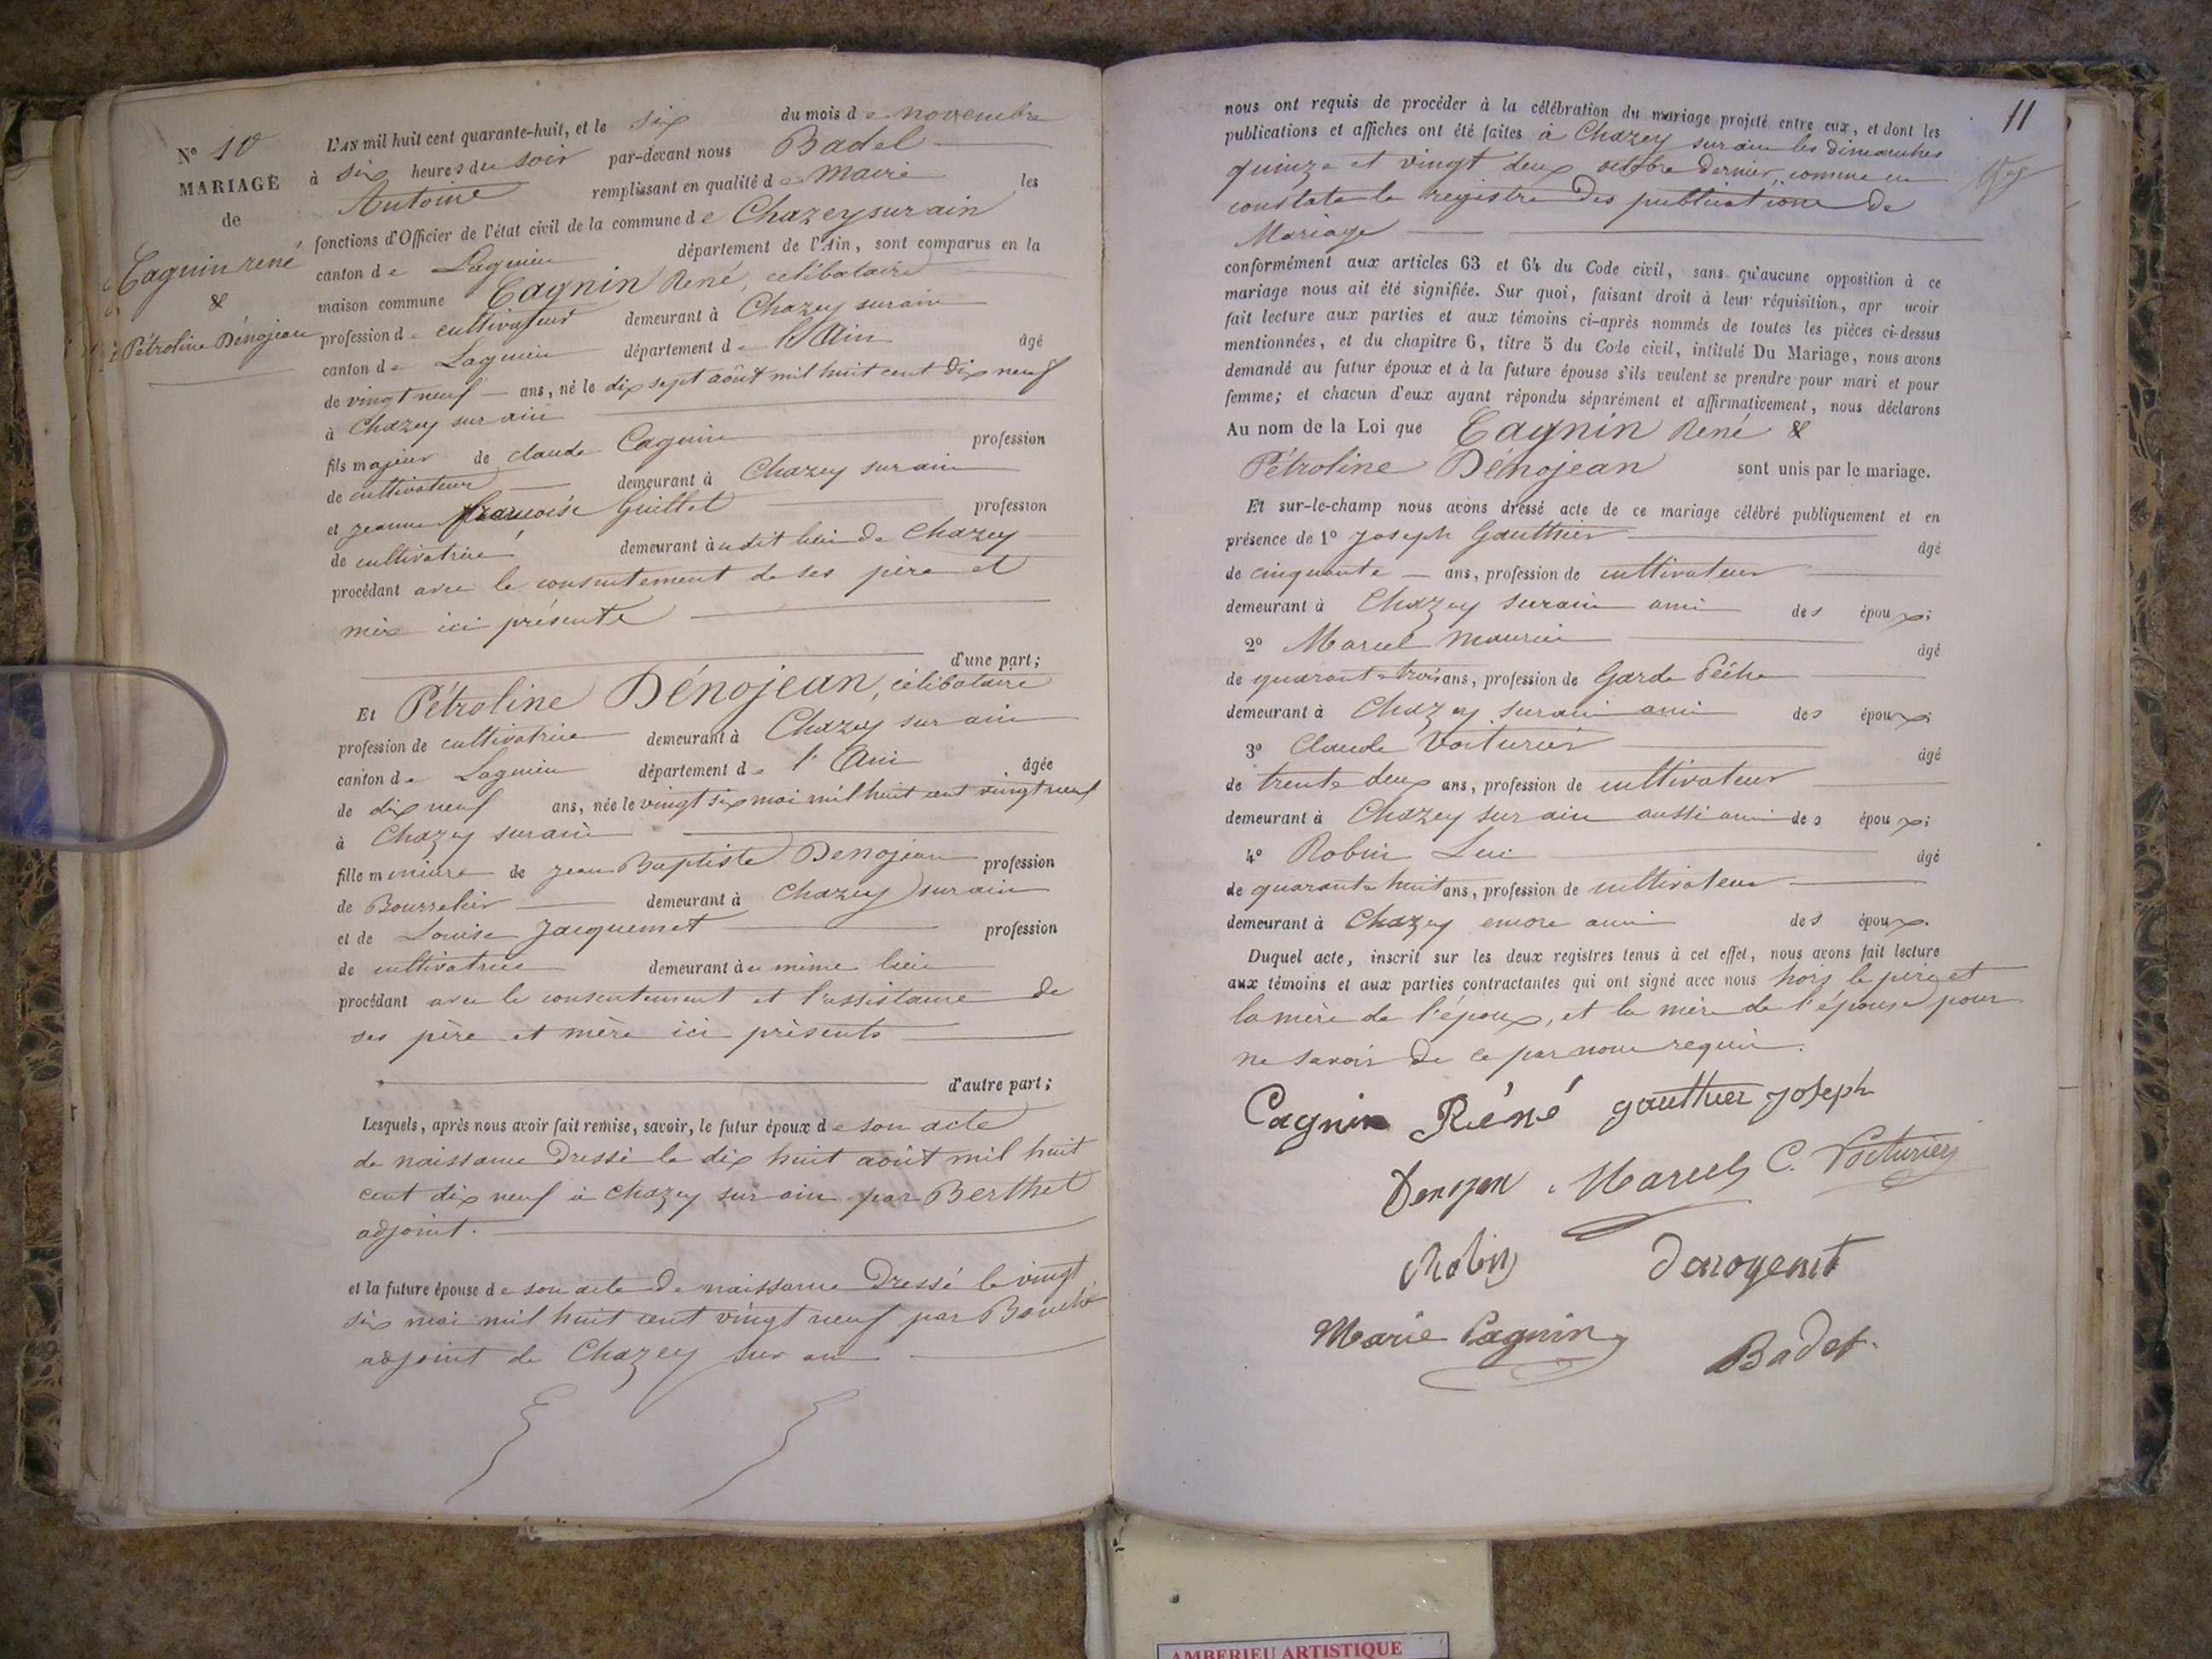 N° 10
MARIAGE
de
Cagnin rené
&
Pétroline Dénojean
L'AN mil huit cent quarante-huit, et le six du mois de novembre
à six heures du soir par-devant nous Badel
Antoine remplissant en qualité de maire les
fonctions d'Officier de l'état civil de la commune de Chazey sur ain
canton de Lagnieu département de l'Ain, sont comparus en la
maison commune Cagnin René, célibataire
profession de cultivateur demeurant à Chazey sur ain
canton de Lagnieu département de l'Ain âgé
de vingt neuf ans, né le dix sept août mil huit cent dix neuf
à Chazey sur ain
fils majeur de claude Cagnin profession
de cultivateur demeurant à Chazey sur ain
et jeanne françoise Guillet profession
de cultivatrice demeurant à udit lieu de Chazey
procédant avec le consentement de ses père et
mère ici présente
d'une part;
Et Pétroline Dénojean, célibataire
profession de cultivatrice demeurant à Chazey sur ain
canton de Lagnieu département de l'Ain âgée
de dix neuf ans, née le vingt six mai mil huit cent vingt neuf
à Chazey sur ain
fille mineure de jean Baptiste Denojean profession
de Bourrelier demeurant à Chazey sur ain
et de Louise Jacquemet profession
de cultivatrice demeurant à u même lieu
procédant avec le consentement et l'assistance de
ses père et mère ici présents
d'autre part;
Lesquels, après nous avoir fait remise, savoir, le futur époux de son acte
de naissance Dressé le dix huit août mil huit
cent dix neuf à Chazey sur ain par Berthet
adjoint.
et la future épouse de son acte de naissance Dressé le vingt
six mai mil huit cent vingt neuf par
adjoint de Chazey sur ain
11
nous ont requis de procéder à la célébration du mariage projeté entre eux, et dont les
publications et affiches ont été faites à Chazey sur ain les dimanches
quinze et vingt deux octobre dernier, comme en
constate le registre des publications de
Mariage
conformément aux articles 63 et 64 du Code civil, sans qu'aucune opposition à ce
mariage nous ait été signifiée. Sur quoi, faisant droit à leur réquisition, apr avoir
fait lecture aux parties et aux témoins ci-après nommés de toutes les pièces ci-dessus
mentionnées, et du chapitre 6, titre 5 du Code civil, intitulé Du Mariage, nous avons
demandé au futur époux et à la future épouse s'ils veulent se prendre pour mari et pour
femme; et chacun d'eux ayant répondu séparément et affirmativement, nous déclarons
Au nom de la Loi que Cagnin René &
Pétroline Dénojean sont unis par le mariage.
Et sur-le-champ nous avons dressé acte de ce mariage célébré publiquement et en
présence de 1° Joseph Gauthier âgé
de cinquante ans, profession de cultivateur
demeurant à Chazey sur ain ami des époux;
2° Marcel maurice âgé
de quarante trois ans, profession de Garde Pêche
demeurant à Chazey sur ain ami des époux;
3° Claude Voiturier âgé
de trente deux ans, profession de cultivateur
demeurant à Chazey sur ain aussi ami des époux;
4° Robin Luc âgé
de quarante huit ans, profession de cultivateur
demeurant à Chazey encore ami des époux.
Duquel acte, inscrit sur les deux registres tenus à cet effet, nous avons fait lecture
aux témoins et aux parties contractantes qui ont signé avec nous hors le père et
la mère de l'époux, et la mère de l'épouse pour
ne savoir de ce par nous requis.
Cagnin Réné gauthier joseph
Marcel C. Voiturier
Robin
Marie Cagnin Badel
AMBERIEU ARTISTIQUE